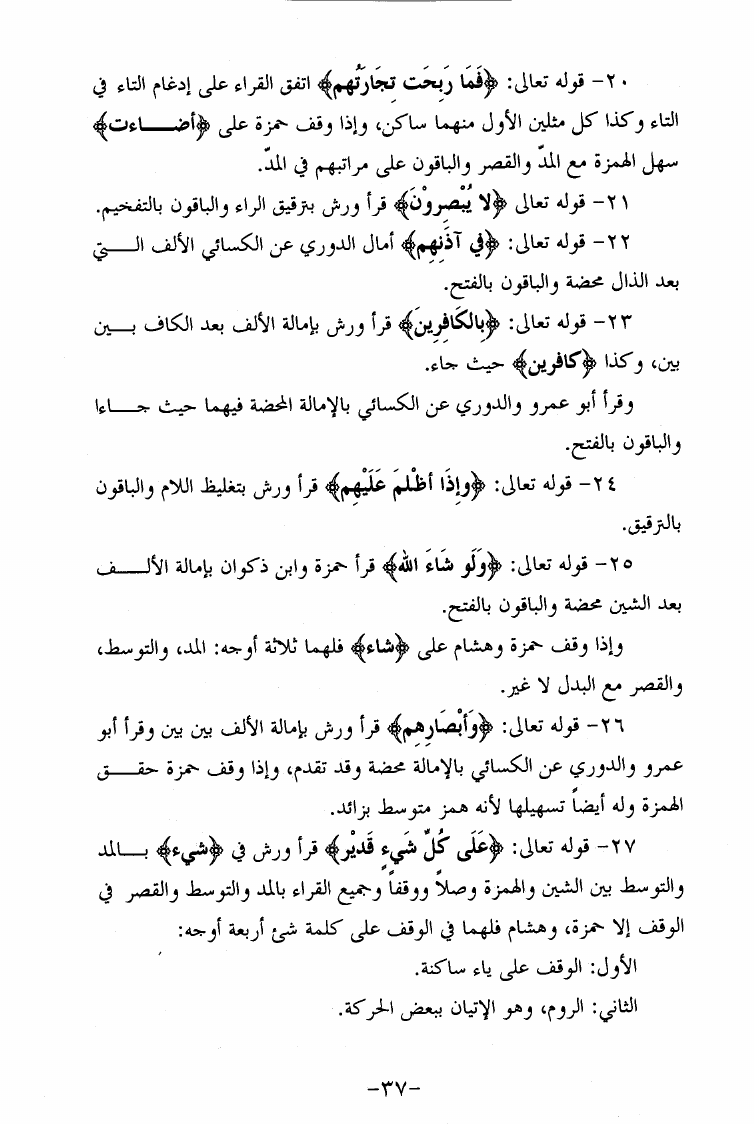 ٢٠- قوله تعالى: ﴿فَمَا رَبِحَت تِجَارَتُهم﴾ اتفق القراء على إدغام التاء في
التاء وكذا كل مثلين الأول منهما ساكن، وإذا وقف حمزة على ﴿أضــاءت﴾
سهل الهمزة مع المدّ والقصر والباقون على مراتبهم في المدّ.
٢١- قوله تعالى ﴿لا يُبْصِروْنَ﴾ قرأ ورش بترقيق الراء والباقون بالتفخيم.
٢٢- قوله تعالى: ﴿في آذَنِهِم﴾ أمال الدوري عن الكسائي الألف الــتي
بعد الذال محضة والباقون بالفتح.
٢٣- قوله تعالى: ﴿بِالكَافِرِينَ﴾ قرأ ورش بإمالة الألف بعد الكاف بــين
بين، وكذا ﴿كافرين﴾ حيث جاء.
وقرأ أبو عمرو والدوري عن الكسائي بالإمالة المحضة فيهما حيث جــاءا
والباقون بالفتح.
٢٤- قوله تعالى: ﴿وإِذَا أظْلمَ عَلَيْهِم﴾ قرأ ورش بتغليظ اللام والباقون
بالترقيق.
٢٥- قوله تعالى: ﴿وَلَو شَاءَ الله﴾ قرأ حمزة وابن ذكوان بإمالة الألــف
بعد الشين محضة والباقون بالفتح.
وإذا وقف حمزة وهشام على ﴿شاء﴾ فلهما ثلاثة أوجه: المد، والتوسط،
والقصر مع البدل لا غير.
٢٦- قوله تعالى: ﴿وَأبْصَارِهِم﴾ قرأ ورش بإمالة الألف بين بين وقرأ أبو
عمرو والدوري عن الكسائي بالإمالة محضة وقد تقدم، وإذا وقف حمزة حقــق
الهمزة وله أيضاً تسهيلها لأنه همز متوسط بزائد.
٢٧- قوله تعالى: ﴿عَلَى كُلِّ شَيءٍ قَدِيْر﴾ قرأ ورش في ﴿شيء﴾ بــالمد
والتوسط بين الشين والهمزة وصلاً ووقفاً وجميع القراء بالمد والتوسط والقصر في
الوقف إلا حمزة، وهشام فلهما في الوقف على كلمة شئ أربعة أوجه:
الأول: الوقف على ياء ساكنة.
الثاني: الروم، وهو الإتيان ببعض الحركة.
-٣٧-